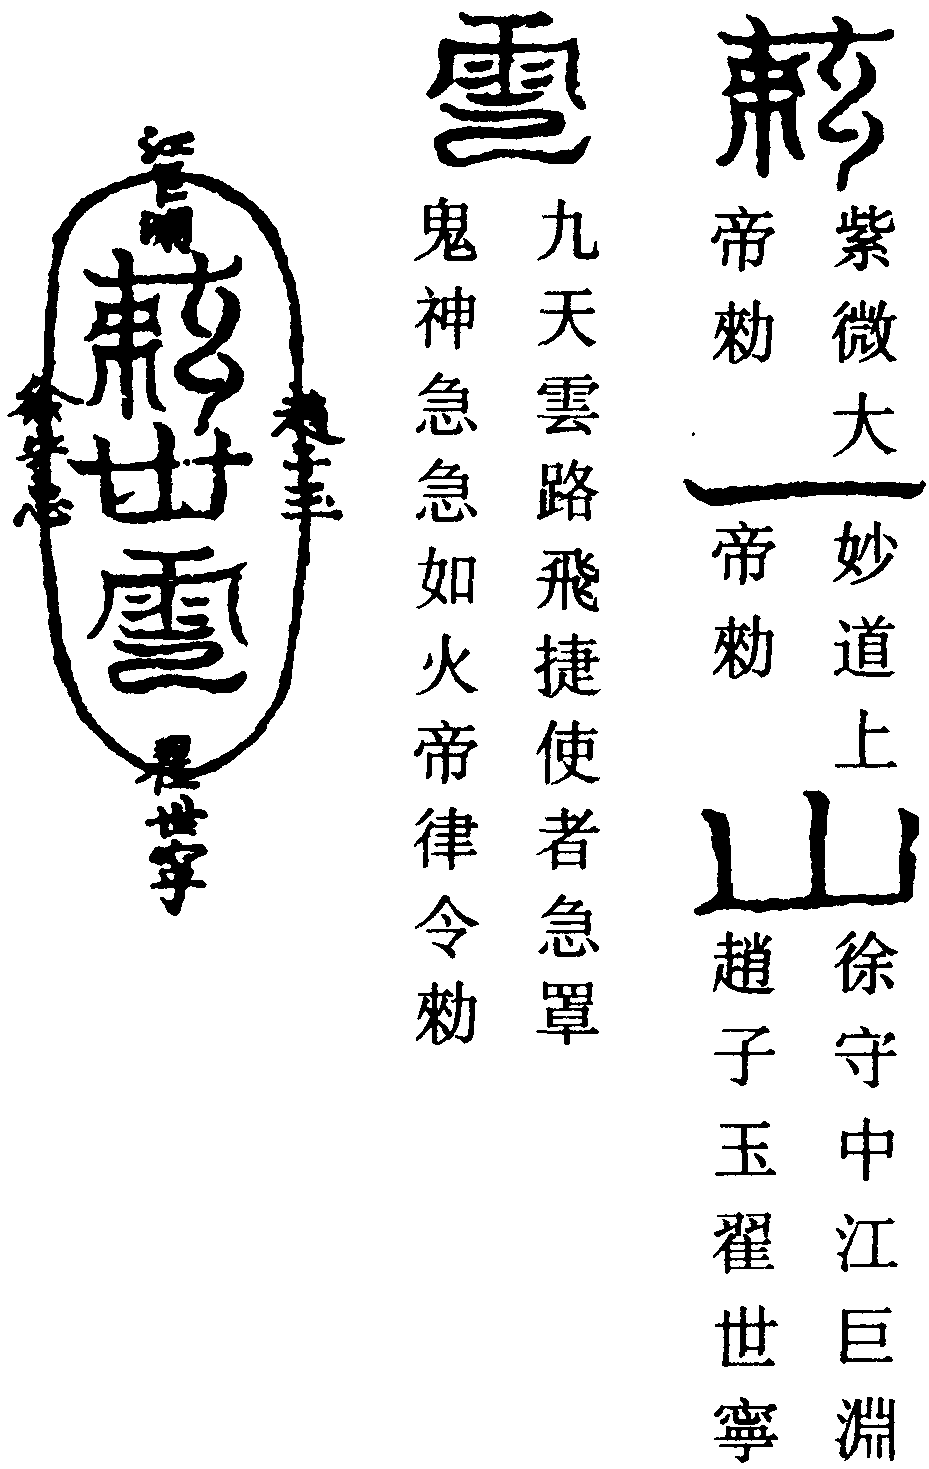 敕
紫微大
帝勑
一
妙道上
帝勑
山
徐守中江巨淵
趙子玉翟世寧
雲
九天雲路飛捷使者急罩
鬼神急急如火帝律令勑
江巨淵
趙子玉
敕
雲
徐守忠
翟世寧